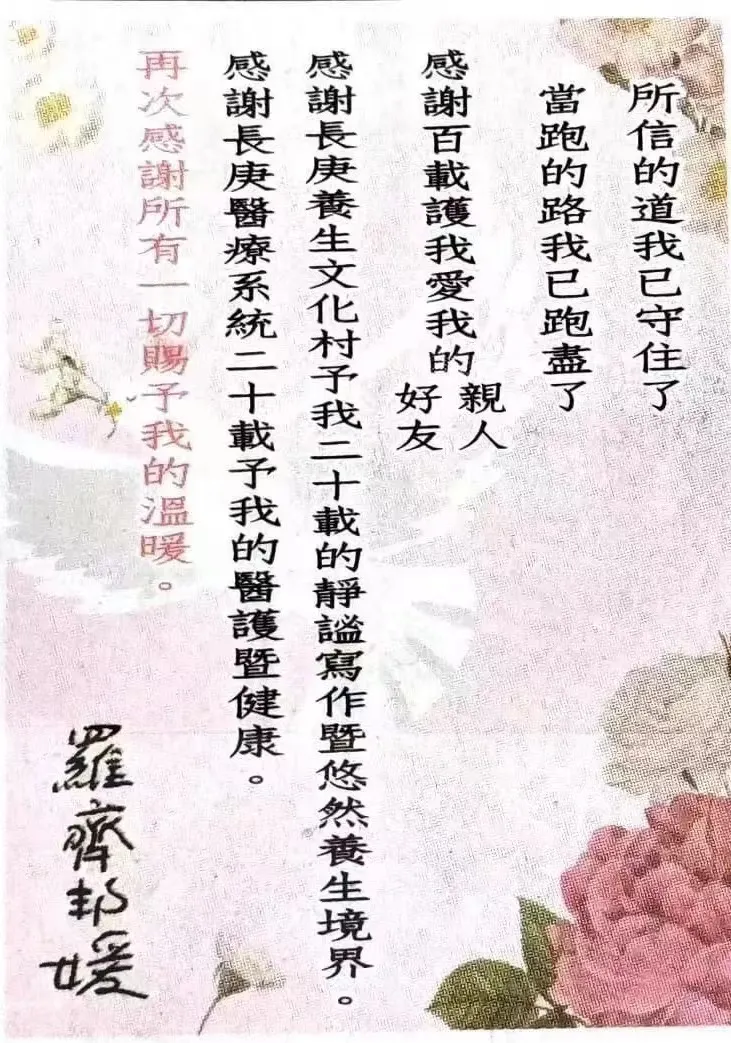 所信的道我已守住了
當跑的路我已跑盡了
感謝百載護我愛我的親人好友
感謝長庚養生文化村予我二十載的靜謐寫作暨悠然養生境界。
感謝長庚醫療系統二十載予我的醫護暨健康。
再次感謝所有一切賜予我的溫暖。
羅齊邦媛